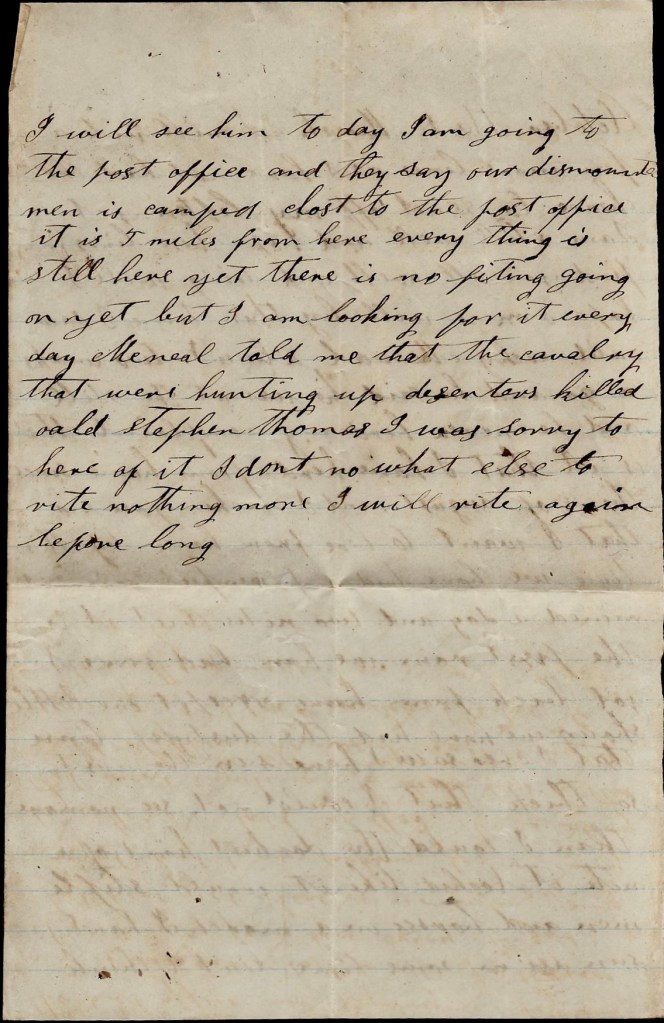 I will see him to day I am going to
the post office and they say our dismounted
men is camped clost to the post office
it is 5 miles from here every thing is
still here yet there is no fiting going
on yet but I am looking for it every
day Mcneal told me that the cavalry
that were hunting up deserters killed
oald stephen thomas I was sorry to
here of it I dont no what else to
rite nothing more I will rite again
before long